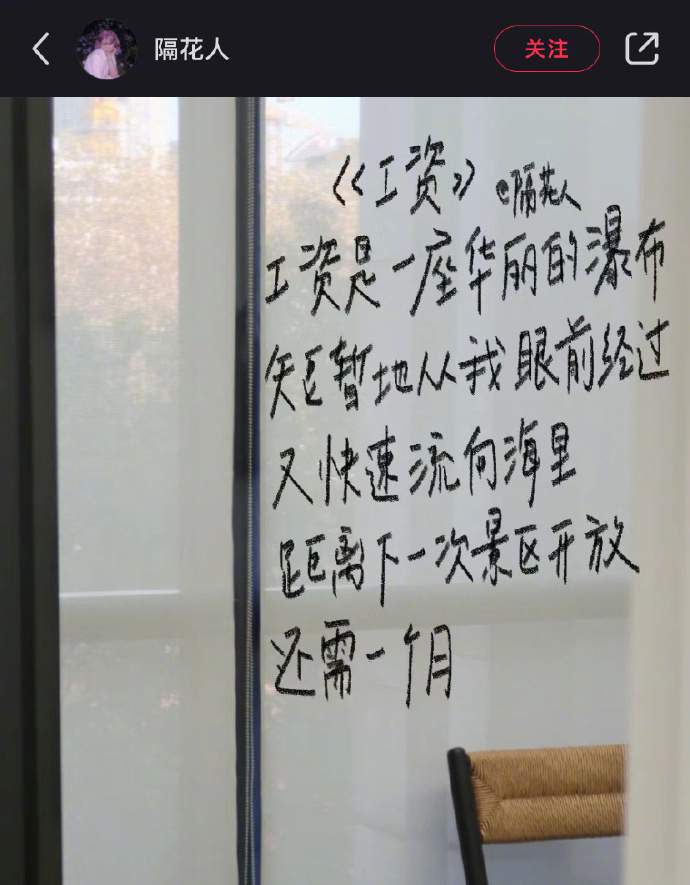 隔花人
关注
《工资》 @隔花人
工资是一座华丽的瀑布
短暂地从我眼前经过
又快速流向海里
距离下一次景区开放
还需一个月